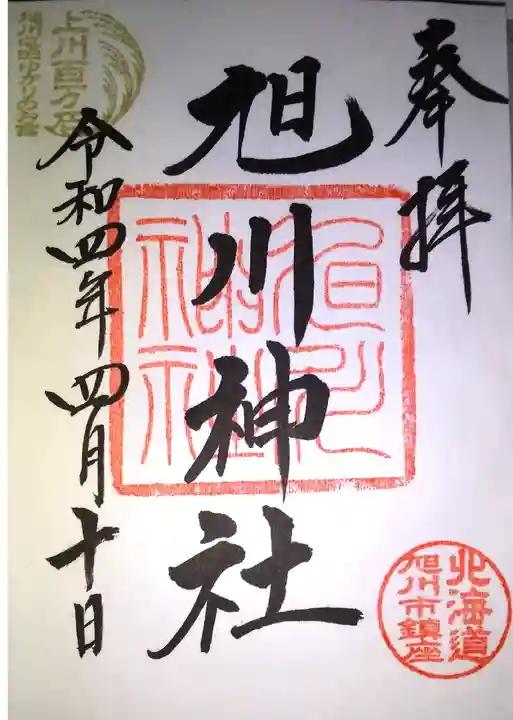 奉拝
北海道
旭川市鎮座
旭川神社
旭川
神社
上川百万石
令和四年四月十日